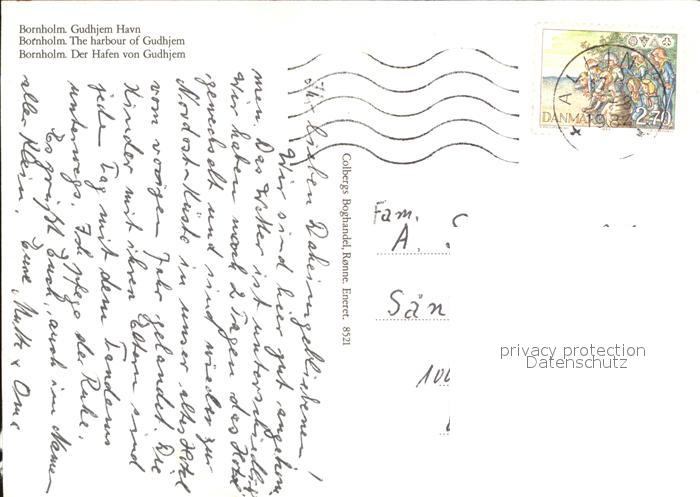 Bornholm. Gudhjem Havn
Bornholm. The harbour of Gudhjem
Bornholm. Der Hafen von Gudhjem
DANMARK 2.70
Colbergs Boghandel, Rønne. Eneret. 8521
Ihr lieben Daheimgebliebenen!
Wir sind hier gut angekom
men. Das Wetter ist unterschiedlich
Wir haben nach 2 Tagen das Hotel
gewechselt und sind wieder zur
Nordost-Küste in unser altes Hotel
vom vorigen Jahr gelandet. Die
Kinder mit ihren Eltern sind
jeden Tag mit dem Tandems
unterwegs. Ich pflege der Ruhe.
Es grüßt Euch, auch im Namen
aller Klein.
Eure Mutti & Oma
Fam.
A.
Sån
100
privacy protection
Datenschutz